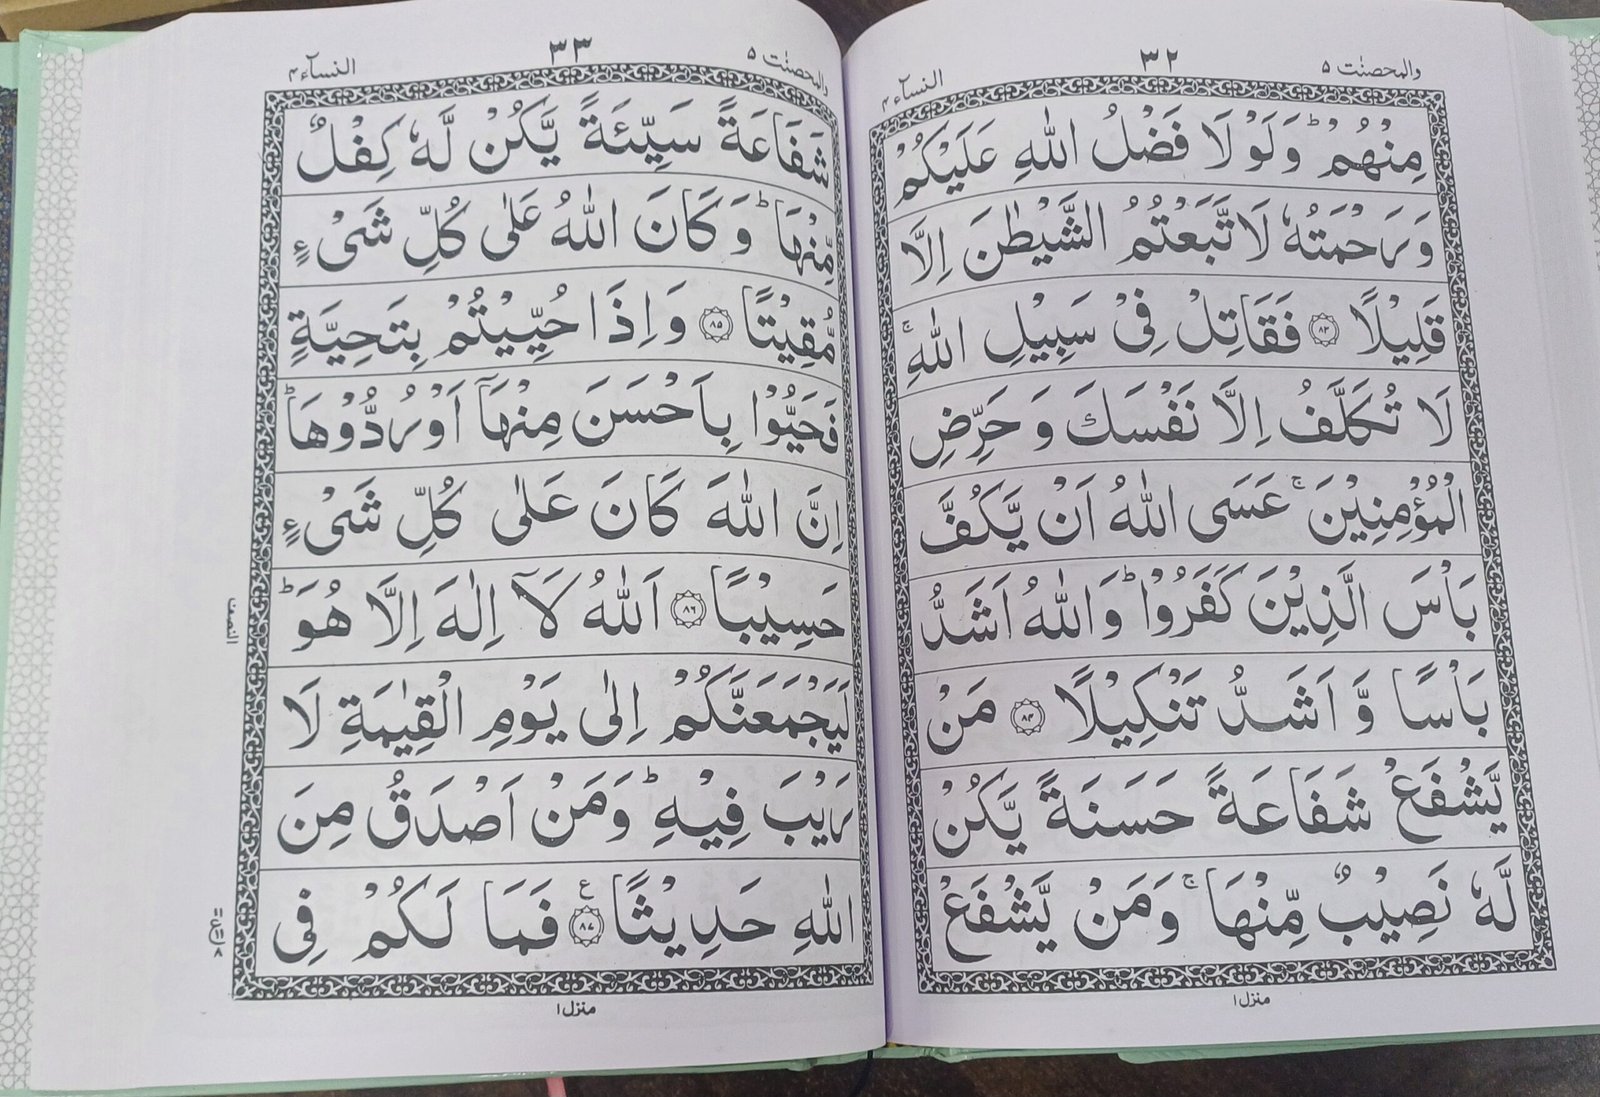 والمحصنٰت ۵
۳۲
النسآء ۴
مِنْهُمْ ؕ وَلَوْ لَا فَضْلُ اللّٰهِ عَلَيْكُمْ
وَ رَحْمَتُهٗ لَا تَّبَعْتُمُ الشَّيْطٰنَ اِلَّا
قَلِيْلًا ۝۸۳ فَقَاتِلْ فِىْ سَبِيْلِ اللّٰهِ ۚ
لَا تُكَلَّفُ اِلَّا نَفْسَكَ وَ حَرِّضِ
الْمُؤْمِنِيْنَ ۚ عَسَى اللّٰهُ اَنْ يَّكُفَّ
بَاْسَ الَّذِيْنَ كَفَرُوْا ؕ وَاللّٰهُ اَشَدُّ
بَاْسًا وَّ اَشَدُّ تَنْكِيْلًا ۝۸۴ مَنْ
يَّشْفَعْ شَفَاعَةً حَسَنَةً يَّكُنْ
لَّهٗ نَصِيْبٌ مِّنْهَا ۚ وَمَنْ يَّشْفَعْ
منزل ۱
والمحصنٰت ۵
۳۳
النسآء ۴
شَفَاعَةً سَيِّئَةً يَّكُنْ لَّهٗ كِفْلٌ
مِّنْهَا ؕ وَ كَانَ اللّٰهُ عَلٰى كُلِّ شَىْءٍ
مُّقِيْتًا ۝۸۵ وَ اِذَا حُيِّيْتُمْ بِتَحِيَّةٍ
فَحَيُّوْا بِاَحْسَنَ مِنْهَاۤ اَوْ رُدُّوْهَا ؕ
اِنَّ اللّٰهَ كَانَ عَلٰى كُلِّ شَىْءٍ
حَسِيْبًا ۝۸۶ اَللّٰهُ لَاۤ اِلٰهَ اِلَّا هُوَ ؕ
لَيَجْمَعَنَّكُمْ اِلٰى يَوْمِ الْقِيٰمَةِ لَا
رَيْبَ فِيْهِ ؕ وَمَنْ اَصْدَقُ مِنَ
اللّٰهِ حَدِيْثًا ۝۸۷ ع فَمَا لَكُمْ فِى
النصف
منزل ۱